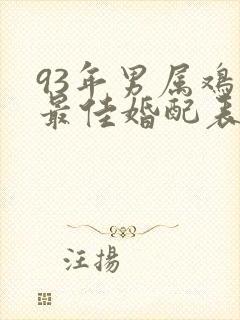 93年男属鸡
最佳婚配表
汪揚